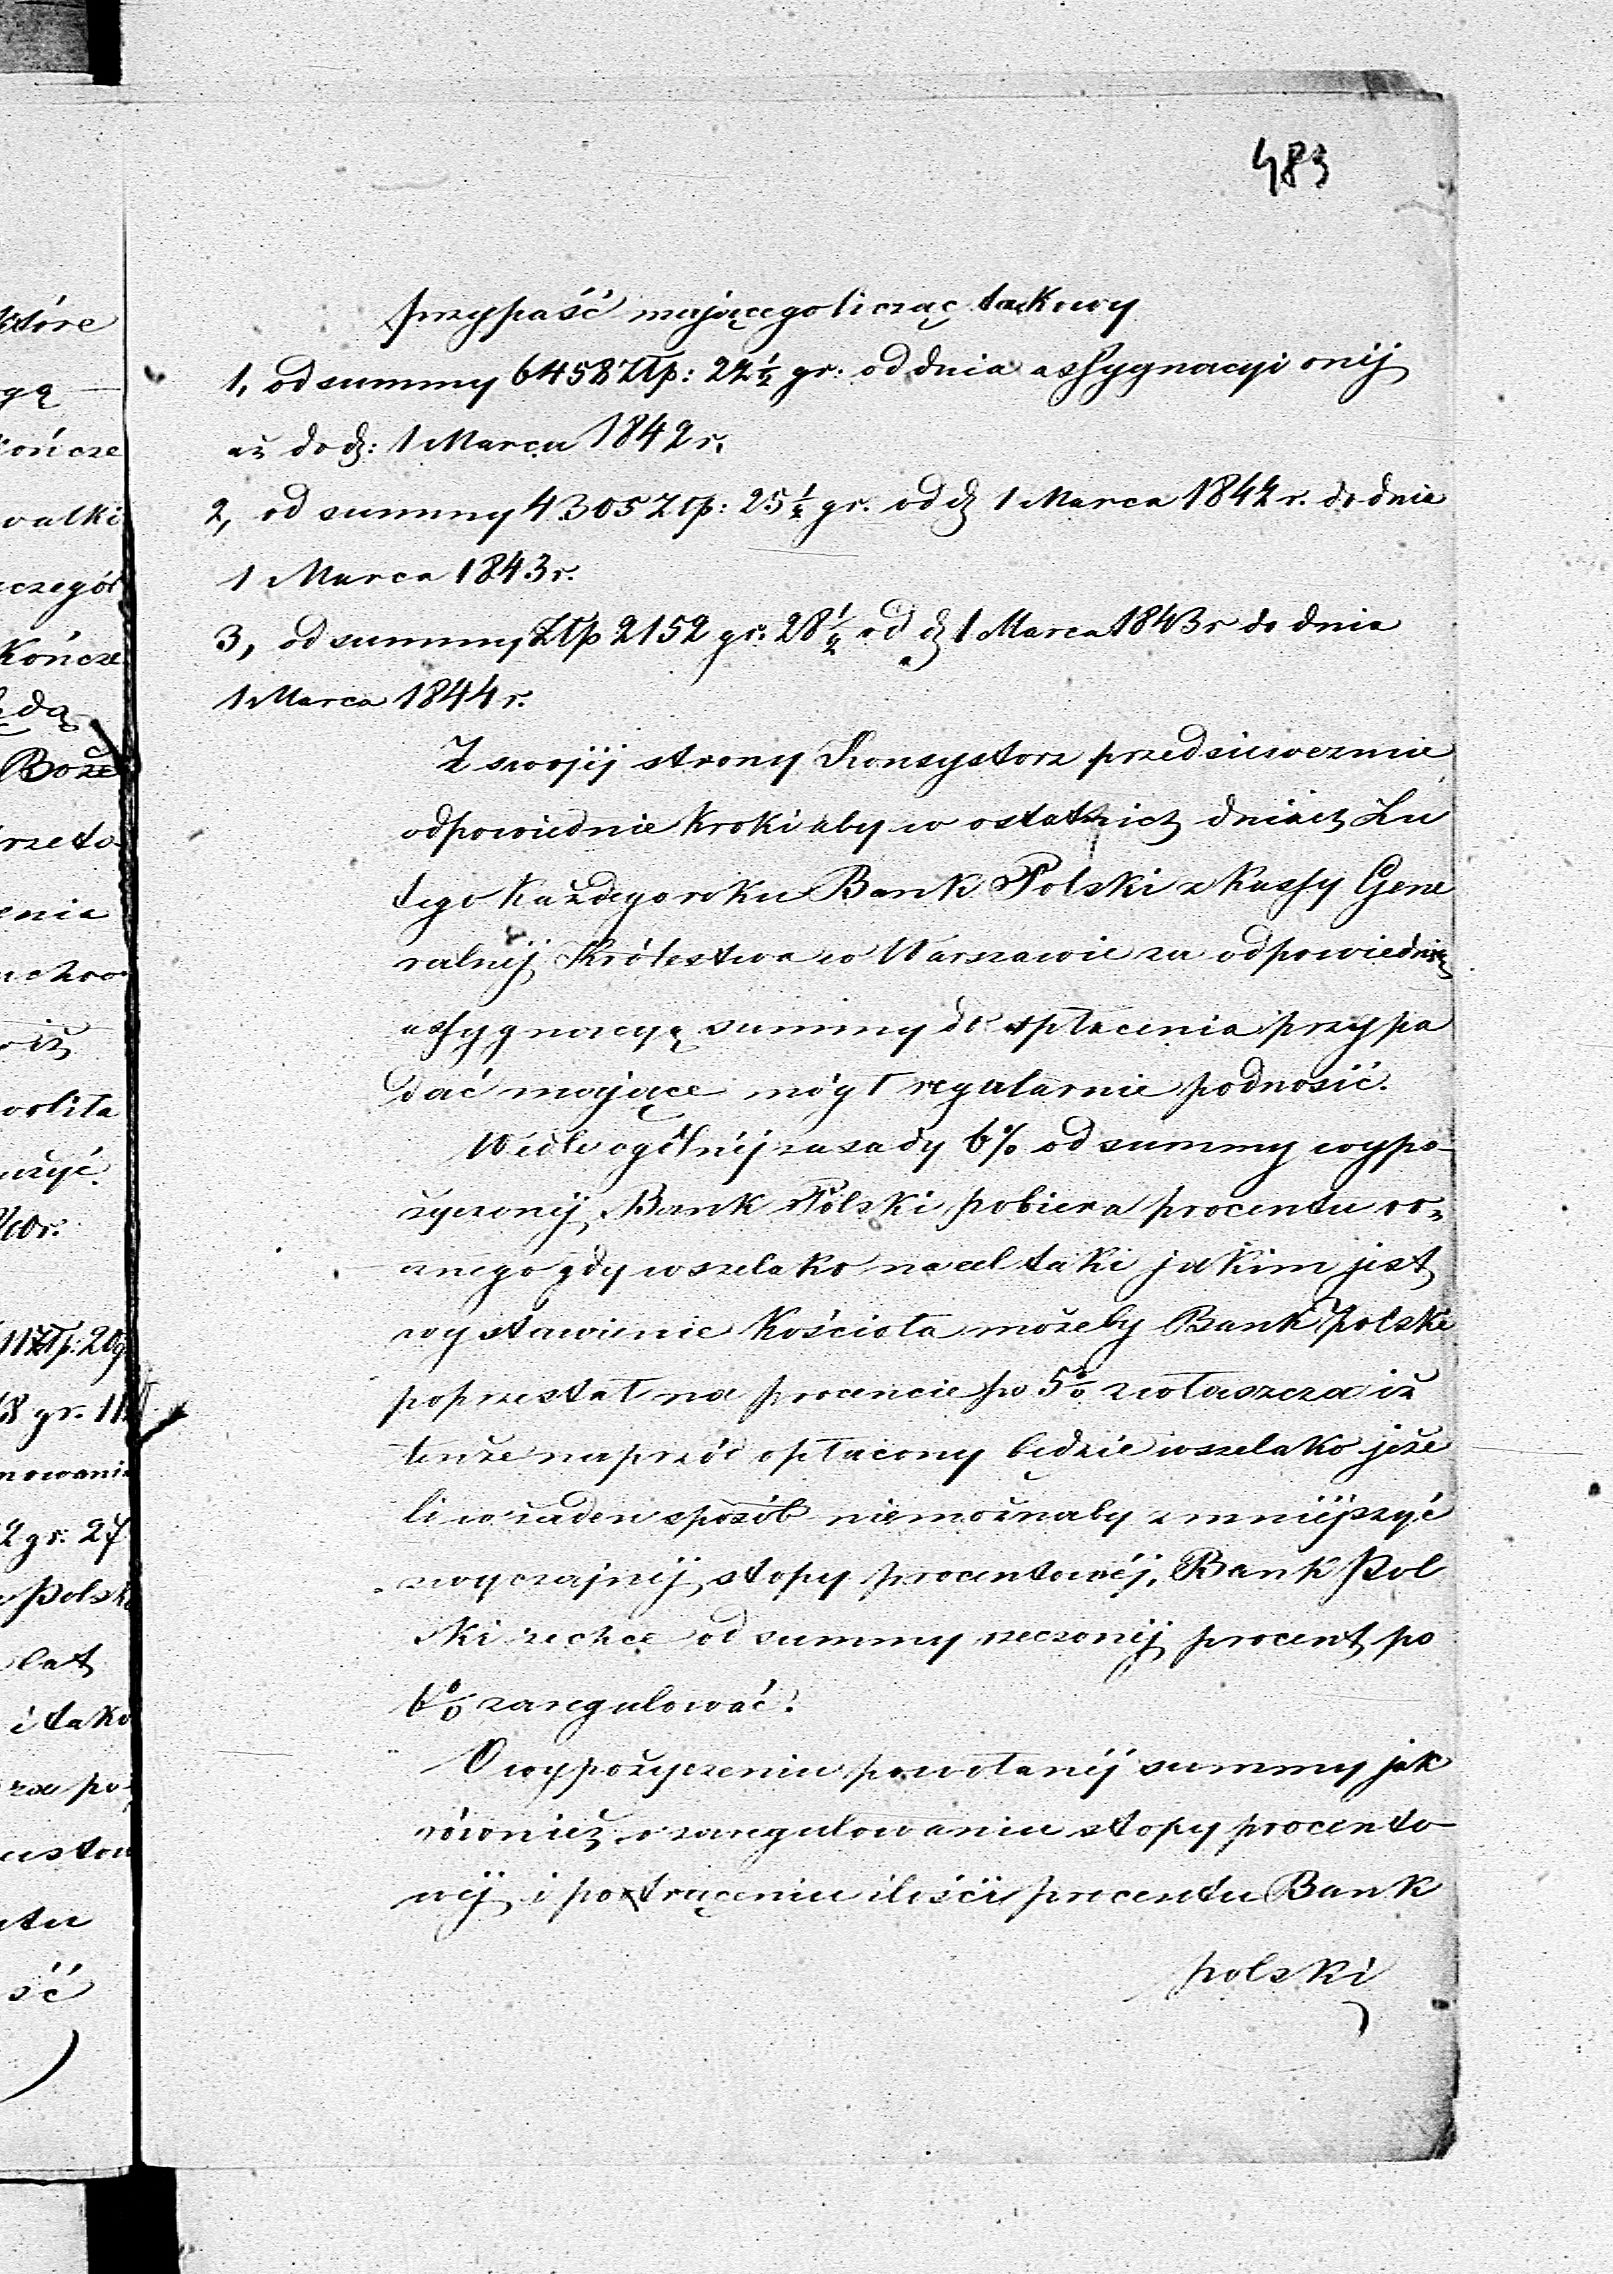 483
przypaść mającego licząc takowy
1, od summy 6458 Złp: 22½ gr: od dnia assygnacyi onéj
aż do d: 1 Marca 1842 r.
2, od summy 4305 Złp: 25½ gr. od d 1 Marca 1842 r. do dnia
1 Marca 1843 r.
3, od summy Złp 2152 gr: 28½ od d 1 Marca 1843 r do dnia
1 Marca 1844 r.
Z swojéj strony Konsystorz przedsiewezmie
odpowiednie kroki aby w ostatnich dniach Lu
tego każdego roku Bank Polski z kassy Gene
ralnéj Królestwa w Warszawie za odpowiednią
assygnacyą summy do spłacenia przypa
dać mające mógł regularnie podnosić.
Wedle ogólnéj zasady 6% od summy wypo-
życzonéj Bank Polski pobiera procentu ro-
cznego gdy wszelako na cel taki jakim jest
wystawienie kościoła możeby Bank Polski
poprzestał na procencie po 5% zwłaszcza iż
tenże naprzód opłacony będzie wszelako jeże
li w żaden sposób niemożnaby zmniejszyć
zwyczajnéj stopy procentowéj, Bank Pol
ski zechce od summy rzeczonéj procent po
6% zaregulować.
O wypożyczeniu powołanéj summy jak
również o zaregulowaniu stopy procento-
wéj i potrąceniu ilości procentu Bank
polski
które
gą
kończe
wałki
szczegół
kończe
będą
Boże
enia
iż
użyć.
117 złp: 20 g
8 gr. 11
nowania
2 gr: 27
Polski
lat
i tako
za po-
ść